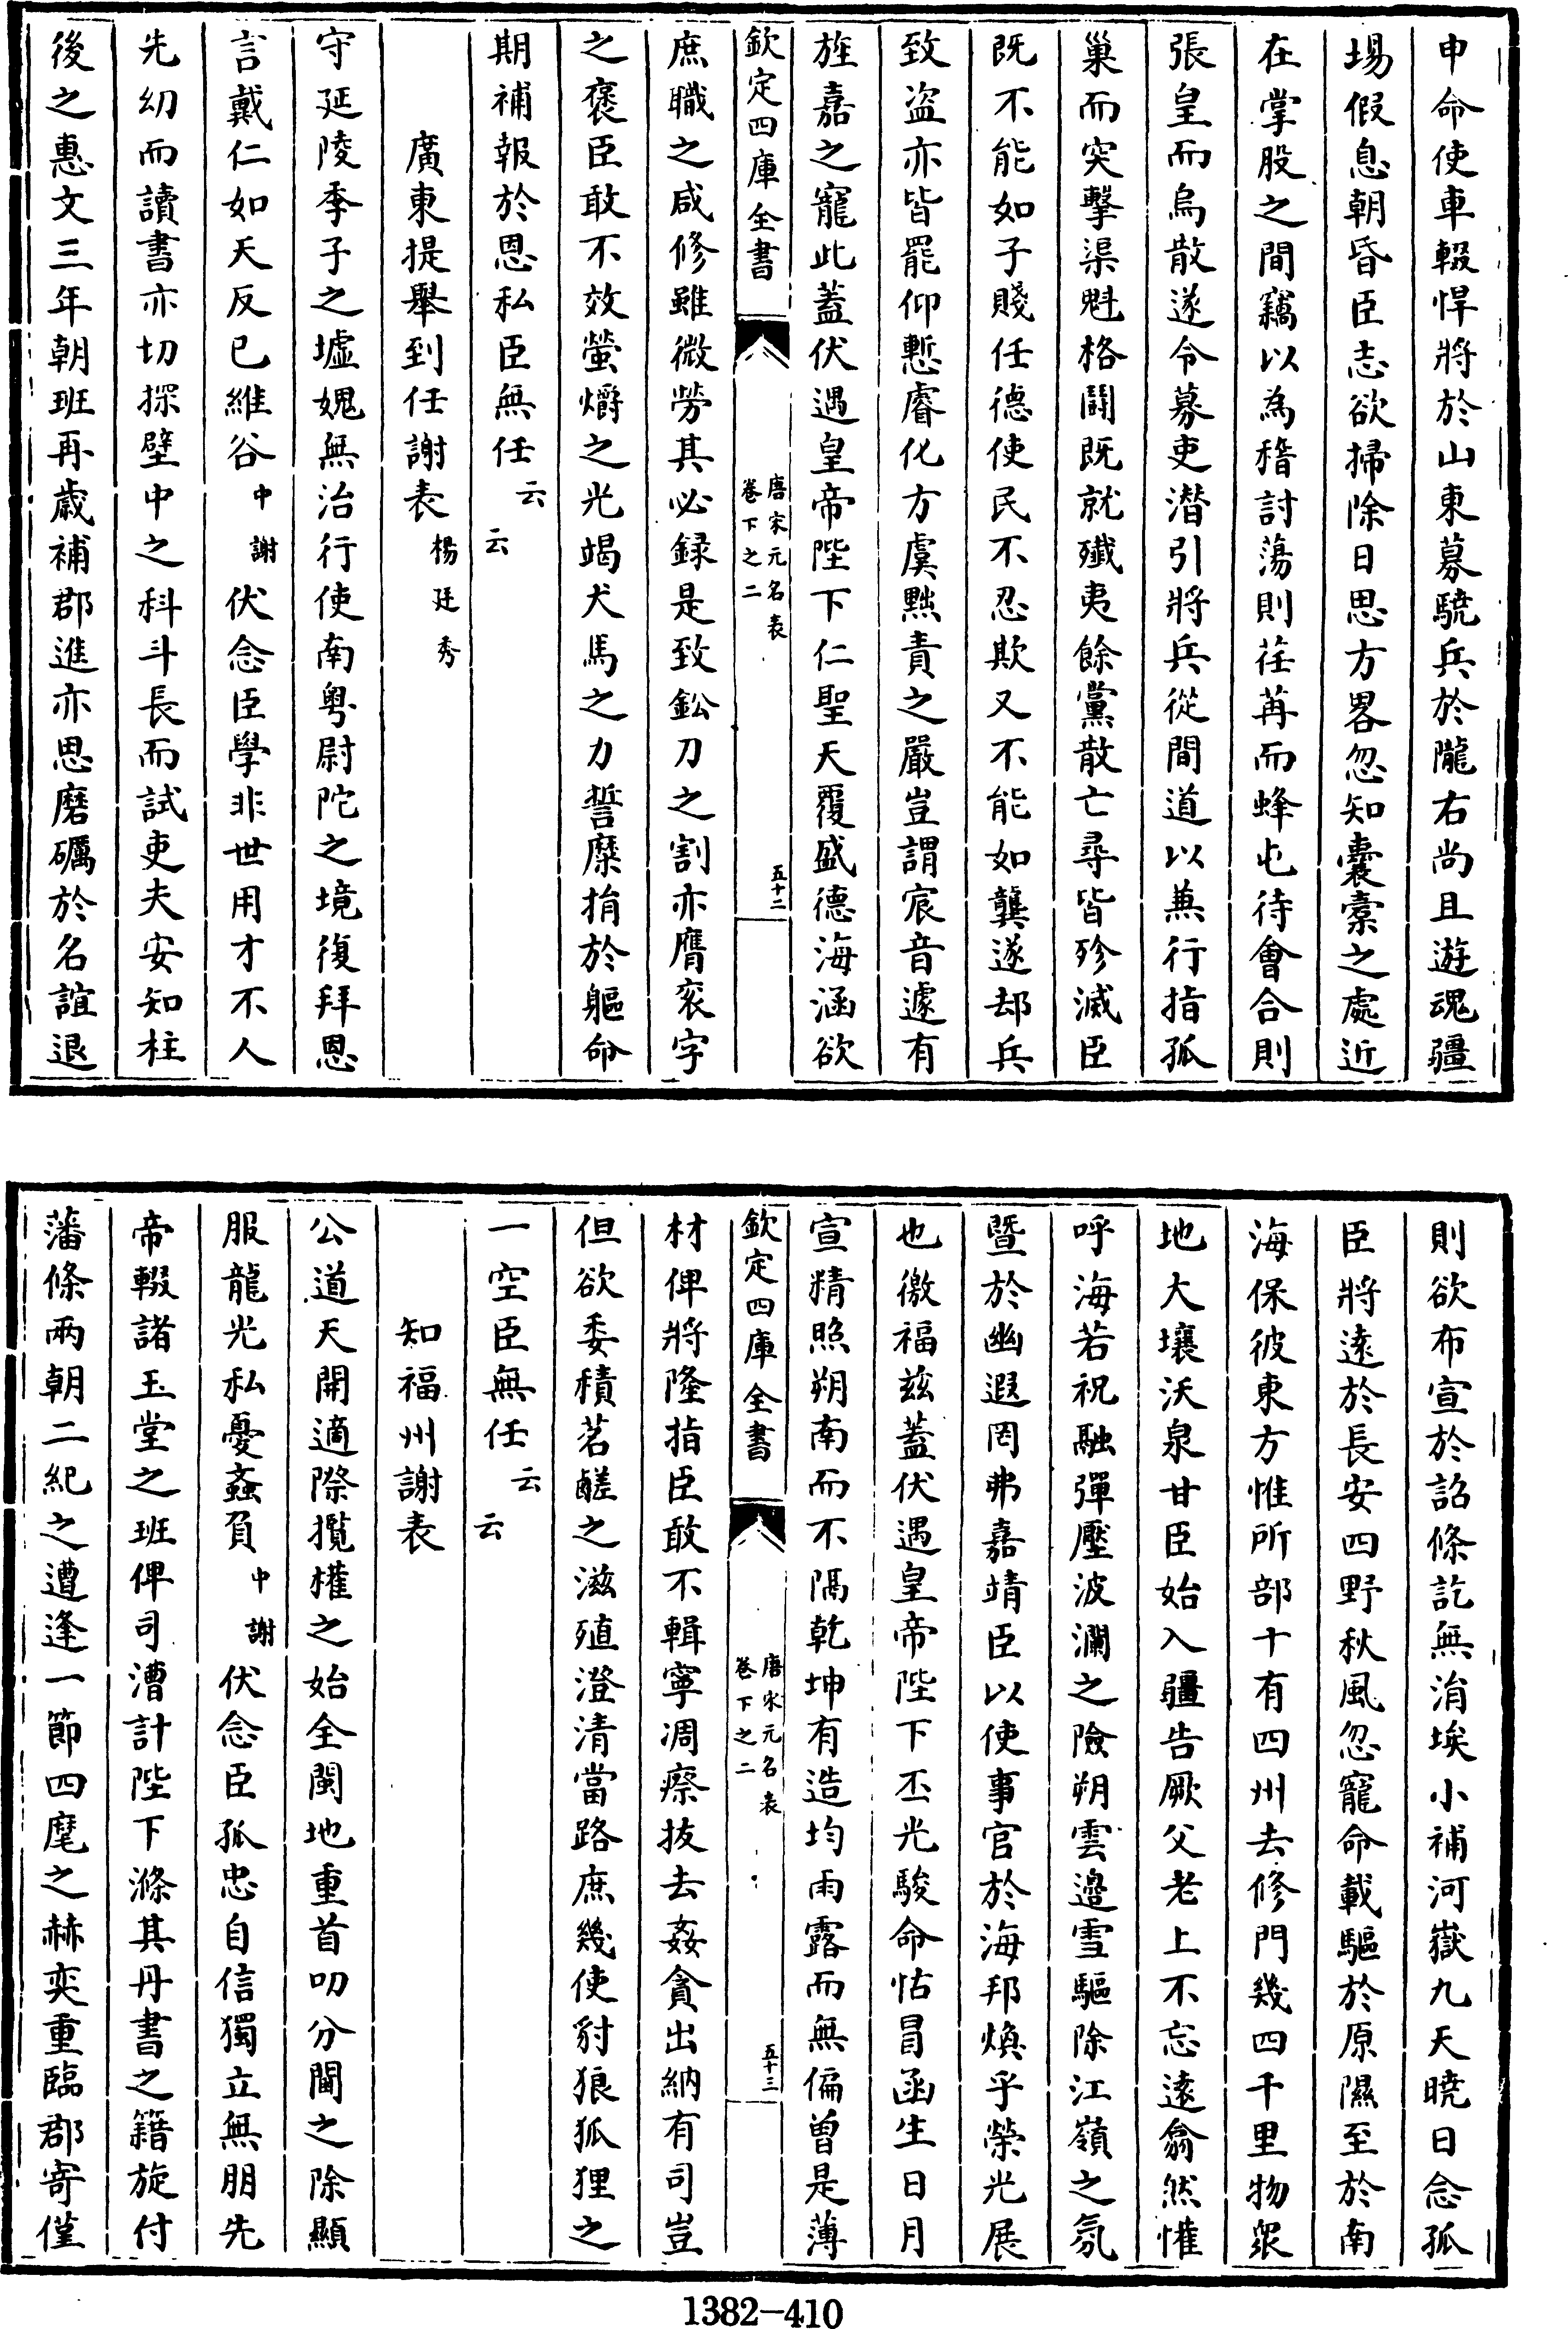 申命使車輟悍將於山東募驍兵於隴右尚且遊魂疆
場假息朝昏臣志欲掃除日思方畧忽知囊橐之處近
在掌股之間竊以為稽討蕩則荏苒而蜂屯待會合則
張皇而烏散遂令募吏潛引將兵從間道以兼行指孤
巢而突擊渠魁格鬭既就殲夷餘黨散亡尋皆殄滅臣
既不能如子賤任德使民不忍欺又不能如龔遂却兵
致盜亦皆罷仰慙睿化方虞黜責之嚴豈謂宸音遽有
旌嘉之寵此蓋伏遇皇帝陛下仁聖天覆盛德海涵欲
欽定四庫全書
唐宋元名表
卷下之二
五十二
庶職之咸修雖微勞其必録是致鈆刀之割亦膺衮字
之褒臣敢不效螢爝之光竭犬馬之力誓糜捐於軀命
期補報於恩私臣無任云云
廣東提舉到任謝表 楊廷秀
守延陵季子之墟媿無治行使南粵尉陀之境復拜恩
言戴仁如天反已維谷中謝伏念臣學非世用才不人
先幼而讀書亦切探壁中之科斗長而試吏夫安知柱
後之惠文三年朝班再歲補郡進亦思磨礪於名誼退
則欲布宣於詔條訖無涓埃小補河嶽九天曉日念孤
臣將遠於長安四野秋風忽寵命載驅於原隰至於南
海保彼東方惟所部十有四州去修門幾四千里物衆
地大壤沃泉甘臣始入疆告厥父老上不忘遠翕然懽
呼海若祝融彈壓波瀾之險朔雲邊雪驅除江嶺之氛
暨於幽遐罔弗嘉靖臣以使事官於海邦煥乎榮光展
也徼福兹蓋伏遇皇帝陛下丕光駿命怙冒函生日月
宣精照朔南而不隅乾坤有造均雨露而無偏曾是薄
欽定四庫全書
唐宋元名表
卷下之二
五十三
材俾將隆指臣敢不輯寧凋瘵拔去姦貪出納有司豈
但欲委積茗鹺之滋殖澄清當路庶幾使豺狼狐狸之
一空臣無任云云
知福州謝表
公道天開適際攬權之始全閩地重首叨分閫之除顯
服龍光私憂蝱負中謝伏念臣孤忠自信獨立無朋先
帝輟諸玉堂之班俾司漕計陛下滌其丹書之籍旋付
藩條兩朝二紀之遭逢一節四麾之赫奕重臨郡寄僅
1382-410